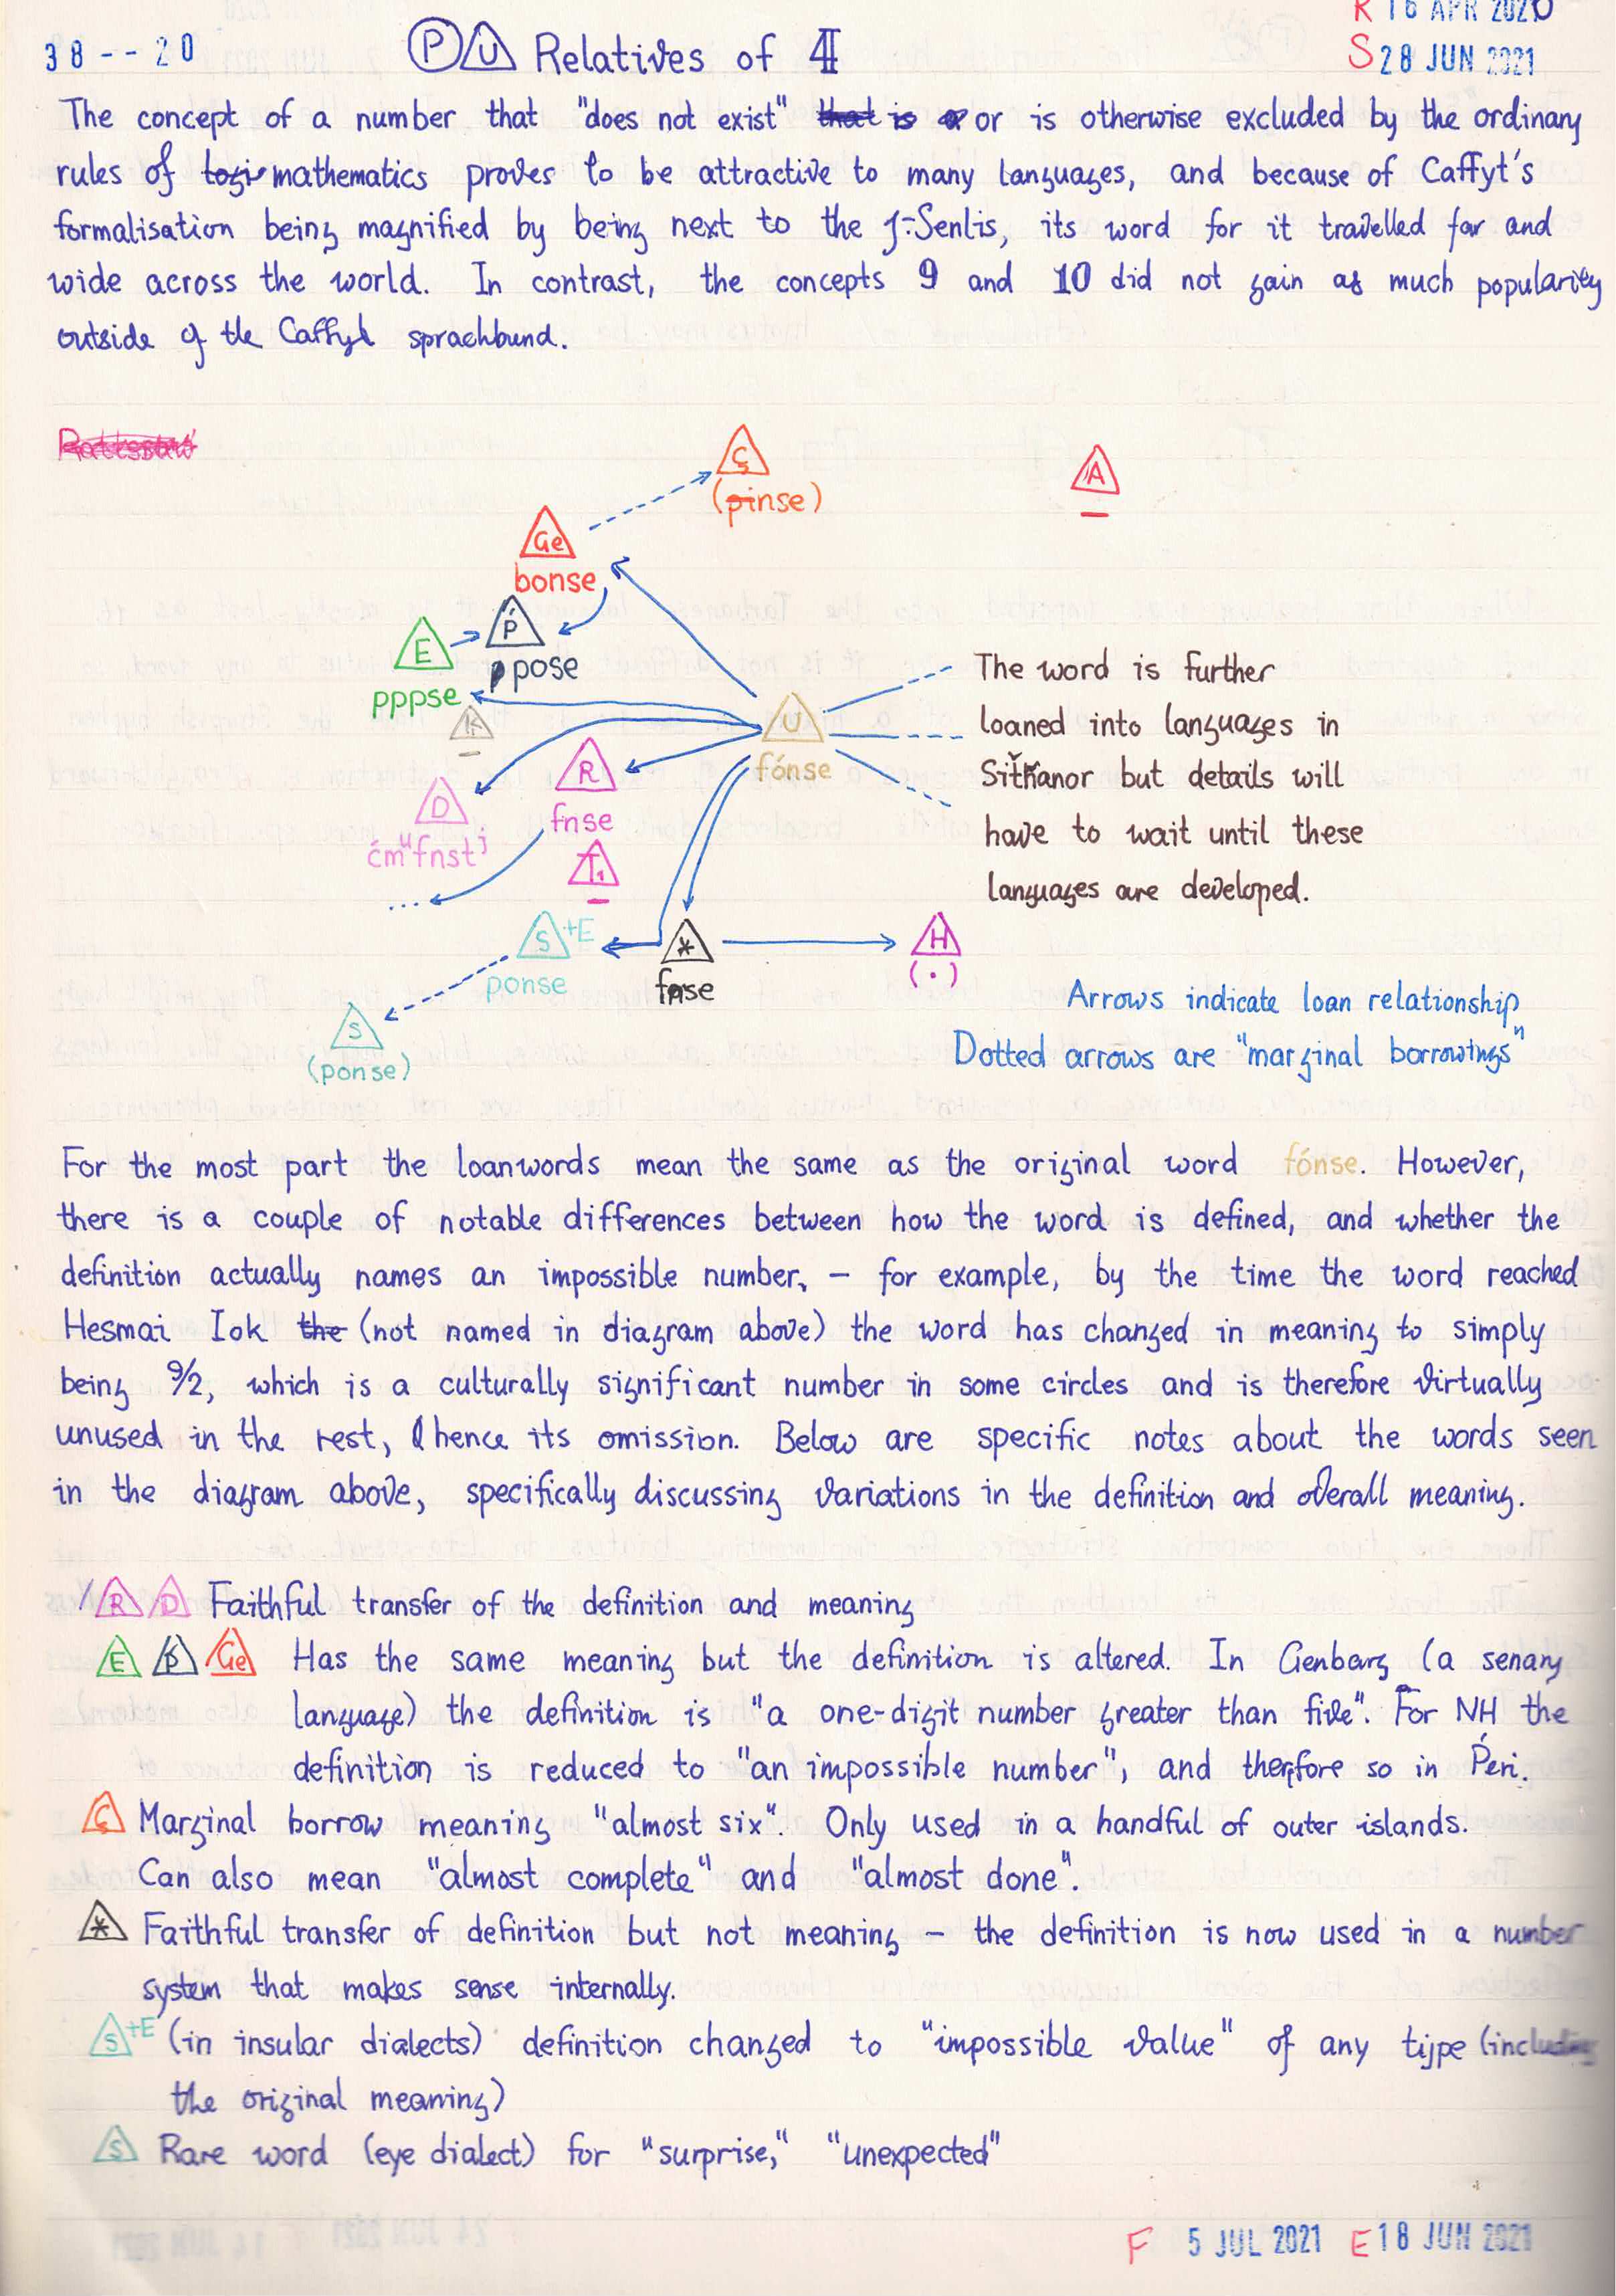 R 16 APR 2020
38--20 Ⓟ U Relatives of 4I
S 28 JUN 2021
The concept of a number that "does not exist" that is or or is otherwise excluded by the ordinary
rules of logi mathematics proves to be attractive to many languages, and because of Caffyt's
formalisation being magnified by being next to the J:Senlis, its word for it travelled far and
wide across the world. In contrast, the concepts 9 and 10 did not gain as much popularity
outside of the Caffyt sprachbund.
Ç
(pinse)
A
Ge
bonse
Ṕ
pose
E
pppse
K
U
fónse
R
fnse
D
ćmᵘfnstʲ
T₁
...
The word is further
loaned into languages in
Sitȟanor but details will
have to wait until these
languages are developed.
S+E
ponse
*
fnse
H
(·)
S
(ponse)
Arrows indicate loan relationship
Dotted arrows are "marginal borrowings"
For the most part the loanwords mean the same as the original word fónse. However,
there is a couple of notable differences between how the word is defined, and whether the
definition actually names an impossible number, – for example, by the time the word reached
Hesmai Iok the (not named in diagram above) the word has changed in meaning to simply
being 9/2, which is a culturally significant number in some circles and is therefore virtually
unused in the rest, hence its omission. Below are specific notes about the words seen
in the diagram above, specifically discussing variations in the definition and overall meaning.
/ R D Faithful transfer of the definition and meaning
E Ṕ Ge Has the same meaning but the definition is altered. In Genbarg (a senary
language) the definition is "a one-digit number greater than five". For NH the
definition is reduced to "an impossible number", and therefore so in Ṕeri.
Ç Marginal borrow meaning "almost six". Only used in a handful of outer islands.
Can also mean "almost complete" and "almost done".
* Faithful transfer of definition but not meaning – the definition is now used in a number
system that makes sense internally.
S+E (in insular dialects) definition changed to "impossible value" of any type (including
the original meaning)
S Rare word (eye dialect) for "surprise," "unexpected"
F 5 JUL 2021 E 18 JUN 2021